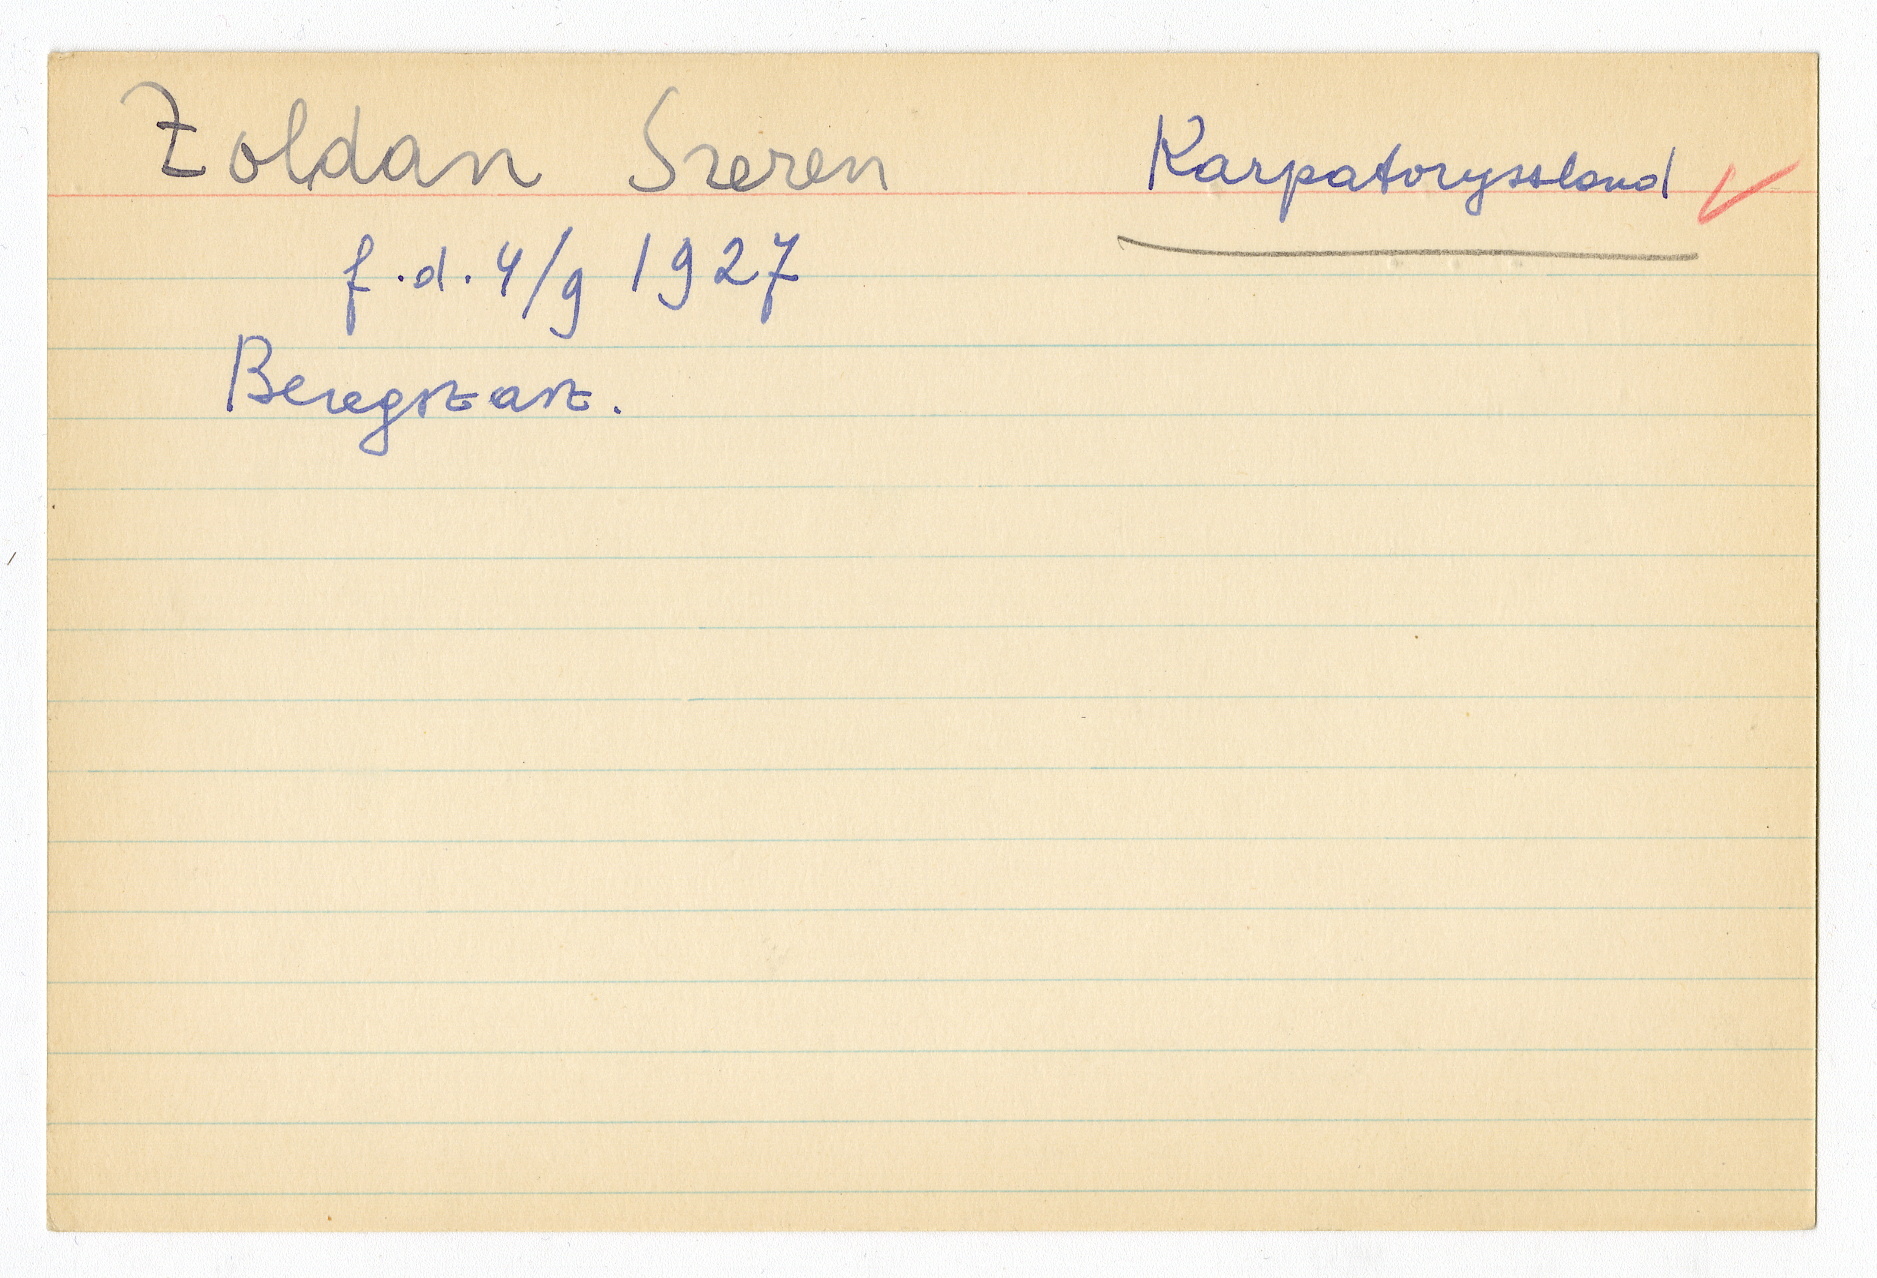 Zoldan Szeren Karpatoryssland
f.d. 4/9 1927
Beregszasz.